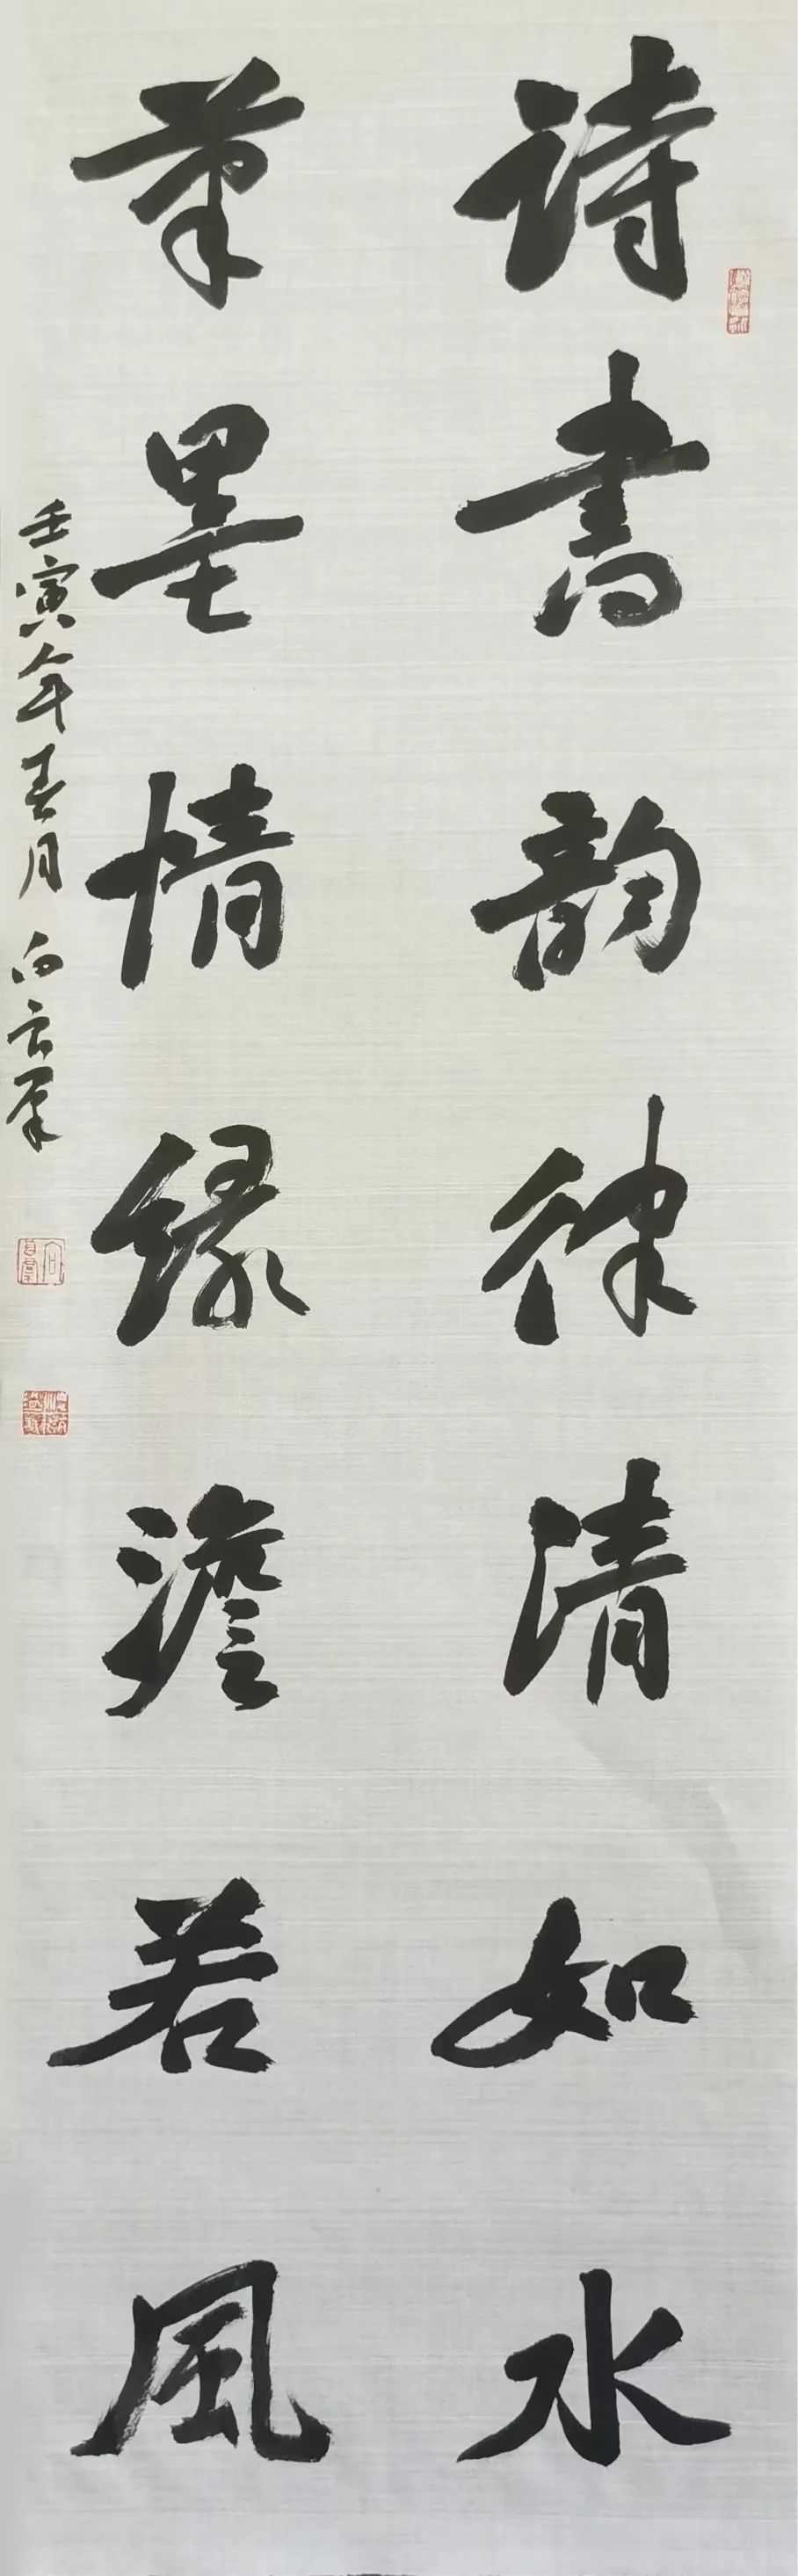 詩書韵律清如水
筆墨情緣澹若風
壬寅年春月 向